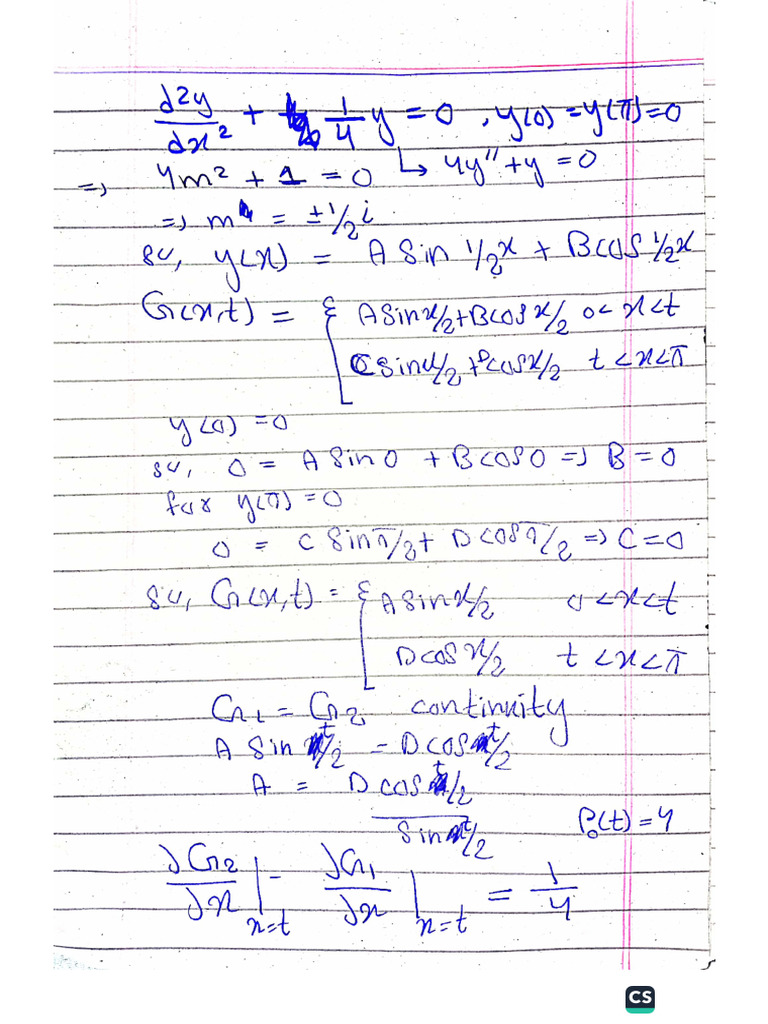 d²y/dx² + 1/4 y = 0 , y(0) = y(π) = 0
=> 4m² + 1 = 0 ↳ 4y'' + y = 0
=> m = ±1/2 i
so, y(x) = A Sin 1/2 x + B cos 1/2 x
G(x,t) = { A Sin x/2 + B cos x/2 0 < x < t
C Sin x/2 + D cos x/2 t < x < π
y(0) = 0
so, 0 = A Sin 0 + B cos 0 => B = 0
for y(π) = 0
0 = C Sin π/2 + D cos π/2 => C = 0
so, G(x,t) = { A Sin x/2 0 < x < t
D cos x/2 t < x < π
G1 = G2 continuity
A Sin t/2 = D cos t/2
A = D cos t/2 / Sin t/2
P₀(t) = 4
∂G2/∂x |x=t - ∂G1/∂x |x=t = 1/4
CS